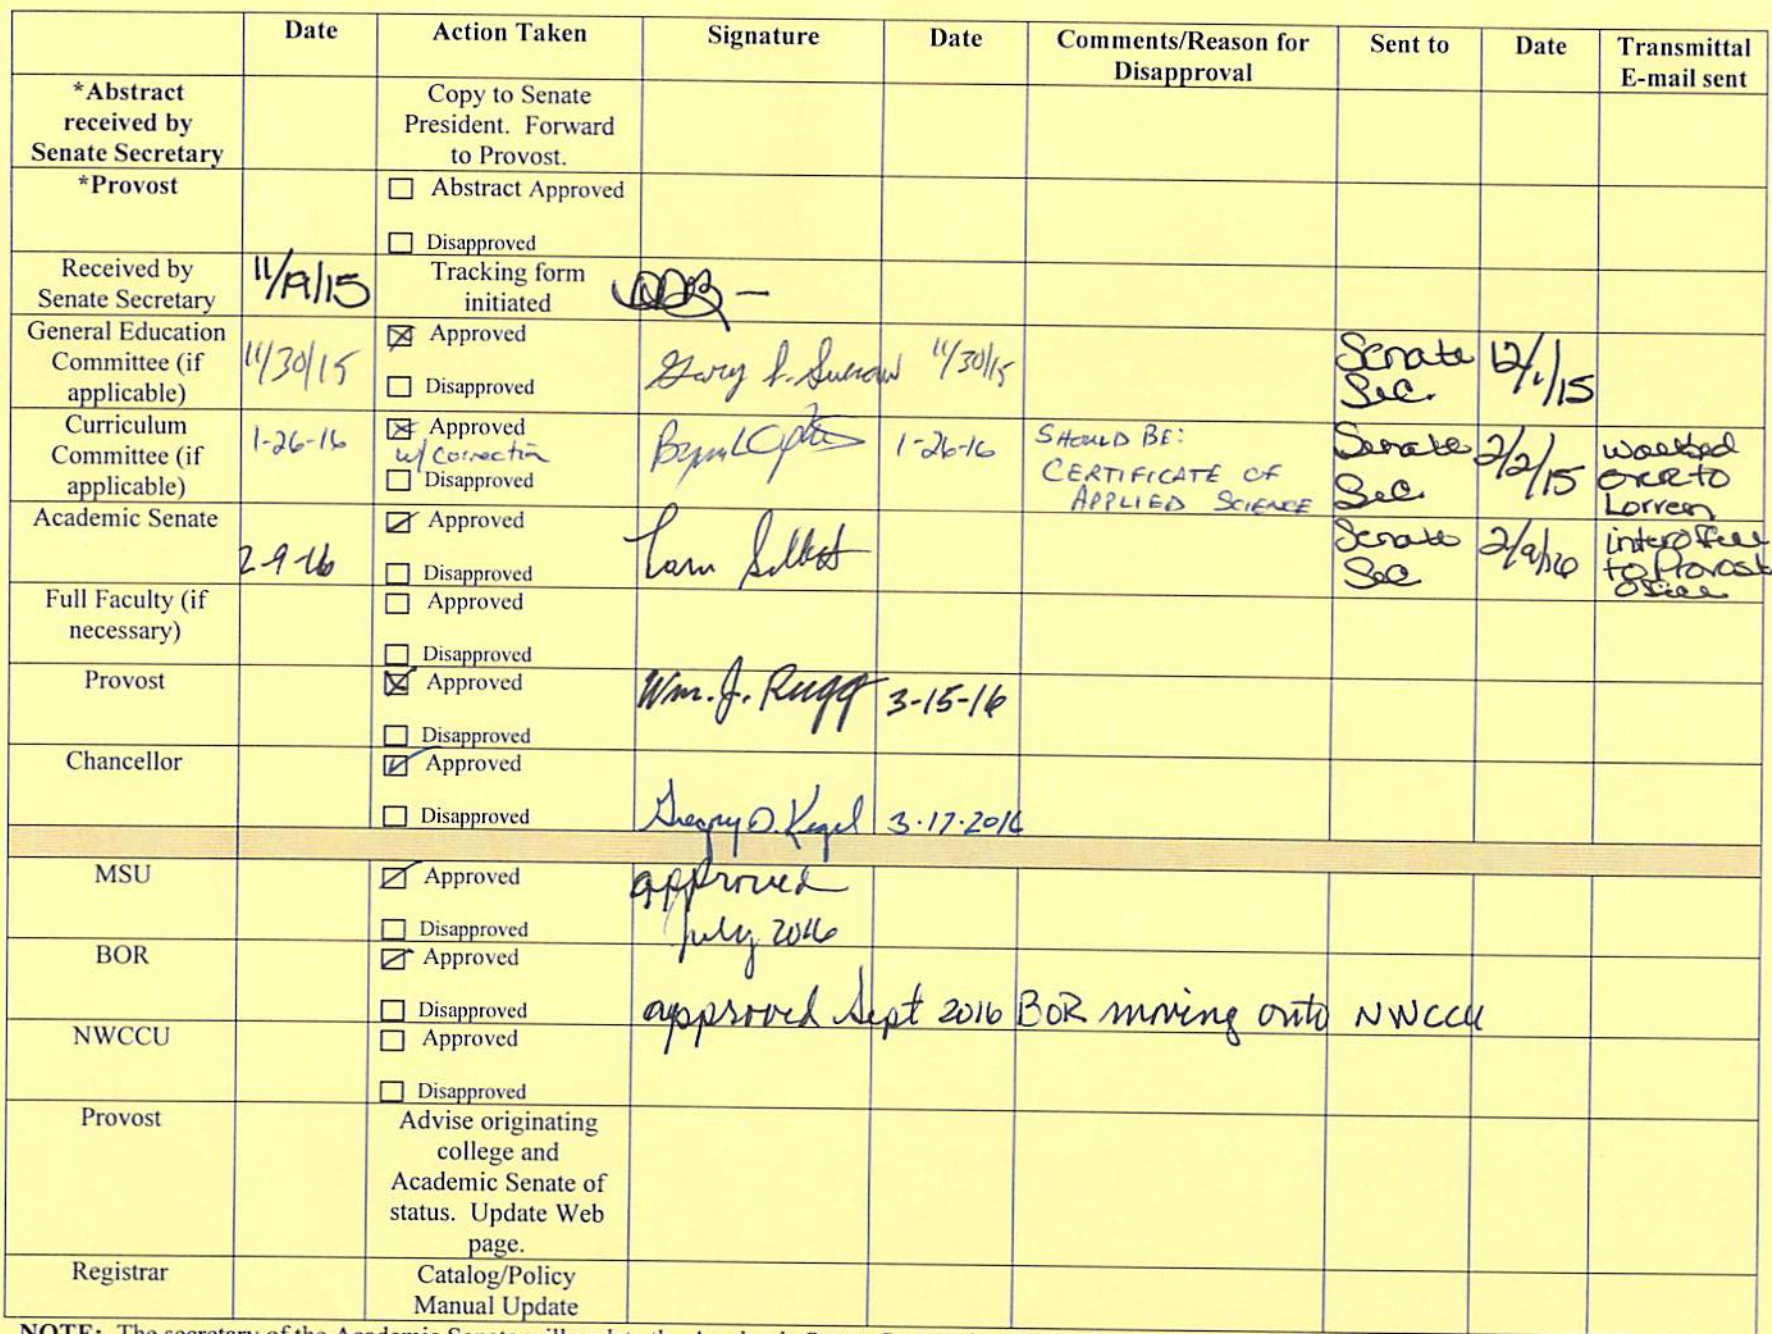 Date Action Taken Signature Date Comments/Reason for Sent to Date Transmittal
Disapproval E-mail sent
*Abstract
received by
Senate Secretary
Copy to Senate
President. Forward
to Provost.
*Provost
Abstract Approved
Disapproved
Received by
Senate Secretary
11/19/15
Tracking form
initiated
General Education
Committee (if
applicable)
11/30/15
Approved
Disapproved
Gary
11/30/15
Senate
Sec.
12/1/15
Curriculum
Committee (if
applicable)
1-26-16
Approved
w/ Correction
Disapproved
1-26-16
SHOULD BE:
CERTIFICATE OF
APPLIED SCIENCE
Senate
Sec.
2/2/15
walked
over to
Lorreen
Academic Senate
2-9-16
Approved
Disapproved
Senate
Sec
2/9/16
interoffice
to Provost
Office
Full Faculty (if
necessary)
Approved
Disapproved
Provost
Approved
Disapproved
Wm. J. Rugg
3-15-16
Chancellor
Approved
Disapproved
Gregory D. Kegel
3.17.2016
MSU
Approved
Disapproved
approved
July 2016
BOR
Approved
Disapproved
approved Sept 2016 BOR moving onto NWCCU
NWCCU
Approved
Disapproved
Provost
Advise originating
college and
Academic Senate of
status. Update Web
page.
Registrar
Catalog/Policy
Manual Update
NOTE: The secretary of the Academic Senate will update the Academic Senate